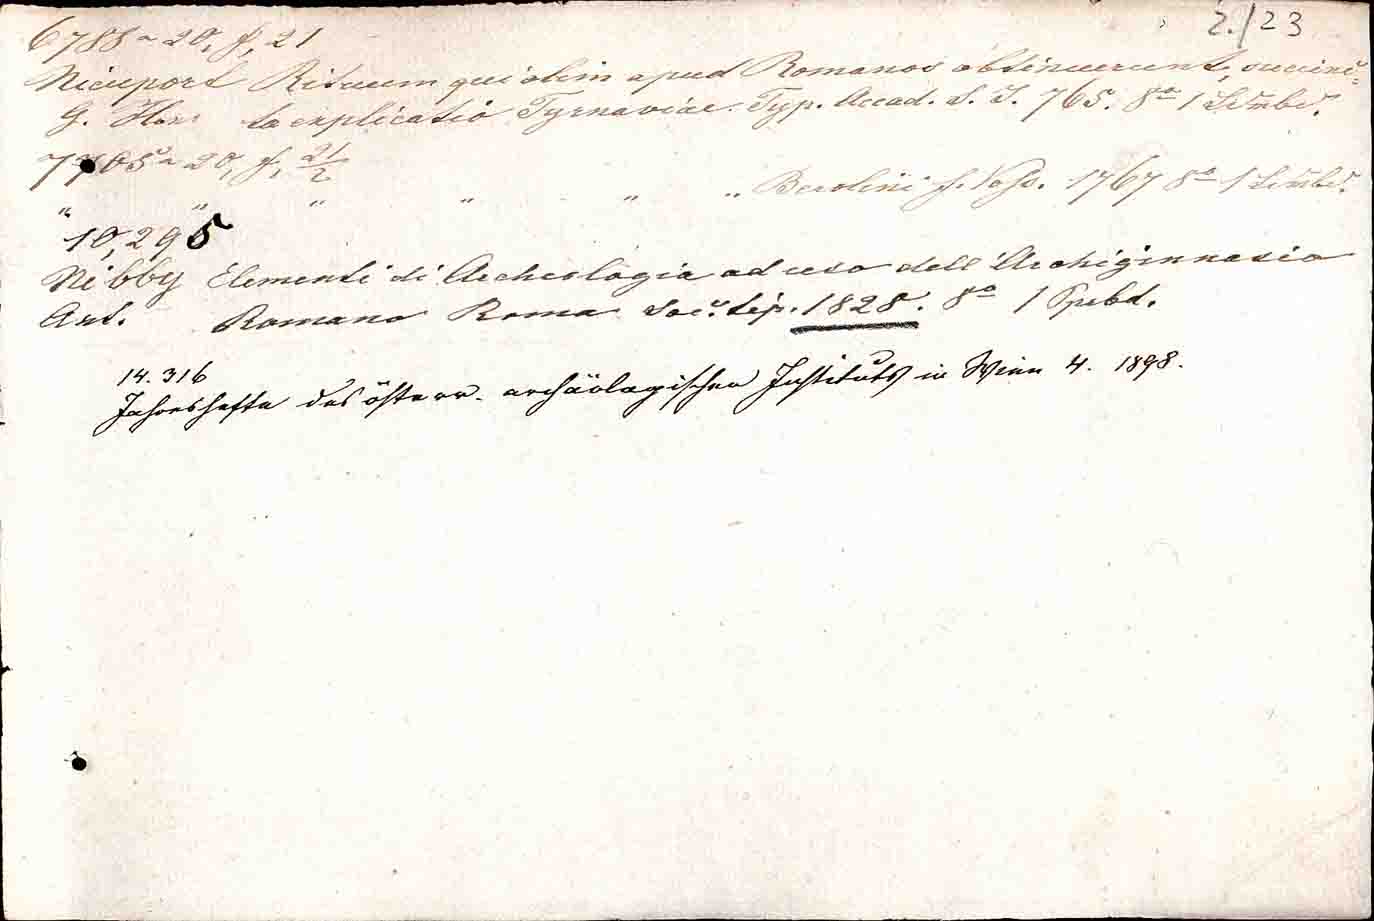 2./23
6788 ~ 20, f, 21
Nieuport Rituum qui olim apud Romanos obtinuerunt, succinc-
G. ta explicatio Tyrnaviae Typ. Accad. S. J. 765. 8° 1
7705 ~ 20, f, 21/2
" " " " " " Berolini 1767 8° 1
10,295
Nibby Elementi di Archeologia ad uso dell' Archiginnasio
Ant. Romano Roma Soc. tip. 1828. 8° 1 Ppbd.
14.316
Jahreshefte des österr. archäologischen Instituts in Wien 4. 1898.